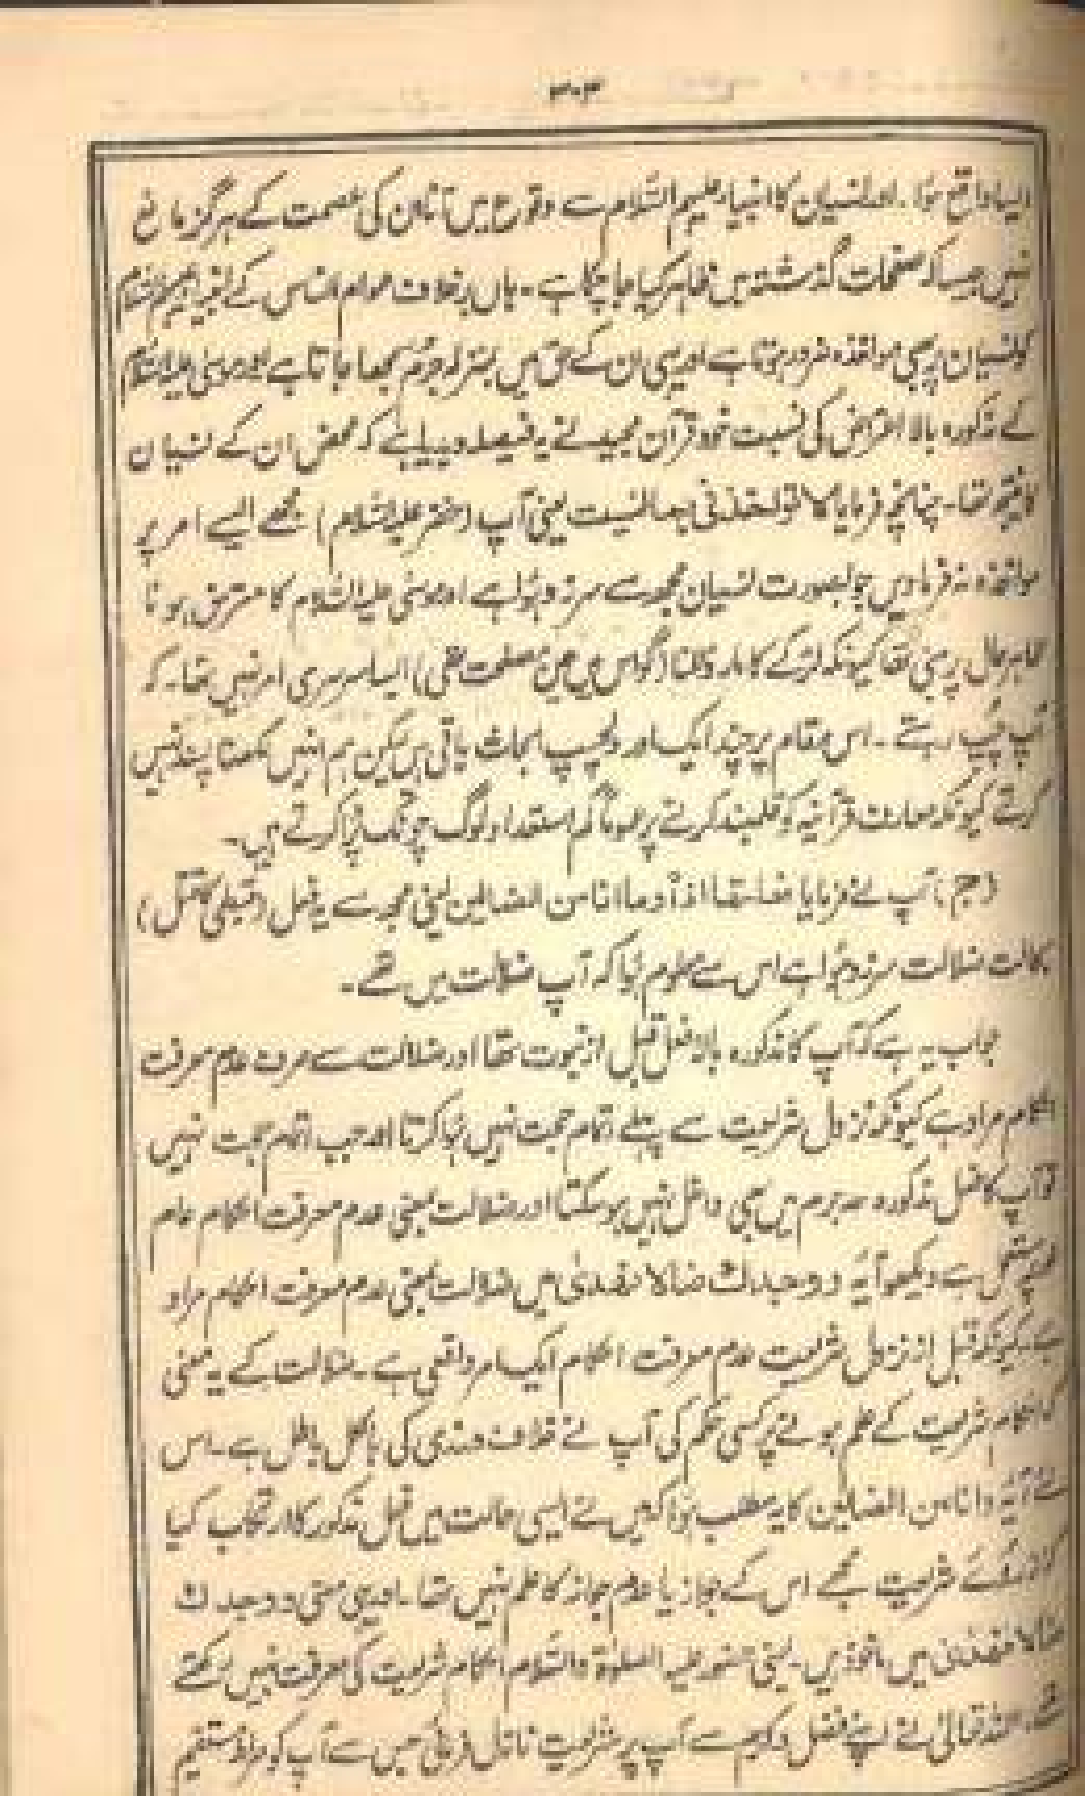 ۳۰۳
ایسا واقع ہوا۔ اور نسیان کا انبیاء علیہم السلام سے وقوع میں آنا ان کی عصمت کے ہرگز مانع
نہیں جیسا کہ صفحات گذشتہ میں ظاہر کیا جا چکا ہے۔ ہاں برخلاف عوام الناس کے انبیاء علیہم السلام
کو نسیان پر بھی مواخذہ ضرور ہوتا ہے اور یہی ان کے حق میں بمنزلہ جرم سمجھا جاتا ہے اور موسیٰ علیہ السلام
کے مذکورہ بالا اعتراض کی نسبت خود قرآن مجید نے یہ فیصلہ دیدیا ہے کہ محض ان کے نسیان
کا نتیجہ تھا۔ چنانچہ فرمایا لا تؤاخذنی بما نسیت یعنی آپ (خضر علیہ السلام) مجھے ایسے امر پر
مواخذہ نہ فرماویں جو بصورت نسیان مجھ سے سرزد ہوا ہے اور موسیٰ علیہ السلام کا معترض ہونا
ظاہر حال پر مبنی تھا کیونکہ لڑکے کا مار ڈالنا (گو اس میں عین مصلحت تھی) ایسا سرسری امر نہیں تھا۔ کہ
آپ چپ رہتے۔ اس مقام پر چند ایک اور دلچسپ ابحاث باقی ہیں لیکن ہم انہیں لکھنا پسند نہیں
کرتے کیونکہ معارف قرآنیہ کو قلمبند کرنے پر عموماً کم استعداد لوگ چونک پڑا کرتے ہیں۔
(جم) آپ نے فرمایا فعلتها اذا وما انا من الضالین یعنی مجھ سے یہ فعل (قبطی کا قتل)
بحالت ضلالت سرزد ہوا ہے اس سے معلوم ہوا کہ آپ ضلالت میں تھے۔
جواب یہ ہے کہ آپ کا مذکورہ بالا فعل قبل از نبوت تھا اور ضلالت سے صرف عدم معرفت
احکام مراد ہے کیونکہ نزول شریعت سے پہلے اتمام حجت نہیں ہوا کرتا اور جب اتمام حجت نہیں
تو آپ کا فعل مذکورہ حد جرم میں بھی داخل نہیں ہو سکتا اور ضلالت بمعنی عدم معرفت احکام عام
طور پر مستعمل ہے دیکھو آیہ و وجدك ضالا فهدیٰ میں ضلالت بمعنی عدم معرفت احکام مراد
ہے۔ کیونکہ قبل از نزول شریعت عدم معرفت احکام ایک امر واقعی ہے۔ ضلالت کے یہ معنی
کہ احکام شریعت کے علم ہونے پر کسی حکم کی آپ نے خلاف ورزی کی بالکل باطل ہے۔ اس
لئے آیہ وانا من الضالین کا یہ مطلب ہوا کہ میں نے ایسی حالت میں فعل مذکور کا ارتکاب کیا
کہ از روئے شریعت مجھے اس کے جواز یا عدم جواز کا علم نہیں تھا۔ اور یہی معنی و وجدك
ضالا فهدیٰ میں ماخوذ ہیں۔ یعنی حضور علیہ الصلوٰۃ والسلام احکام شریعت کی معرفت نہیں رکھتے
تھے۔ اللہ تعالیٰ نے اپنے فضل و کرم سے آپ پر شریعت نازل فرمائی جس سے آپ کو صراط مستقیم